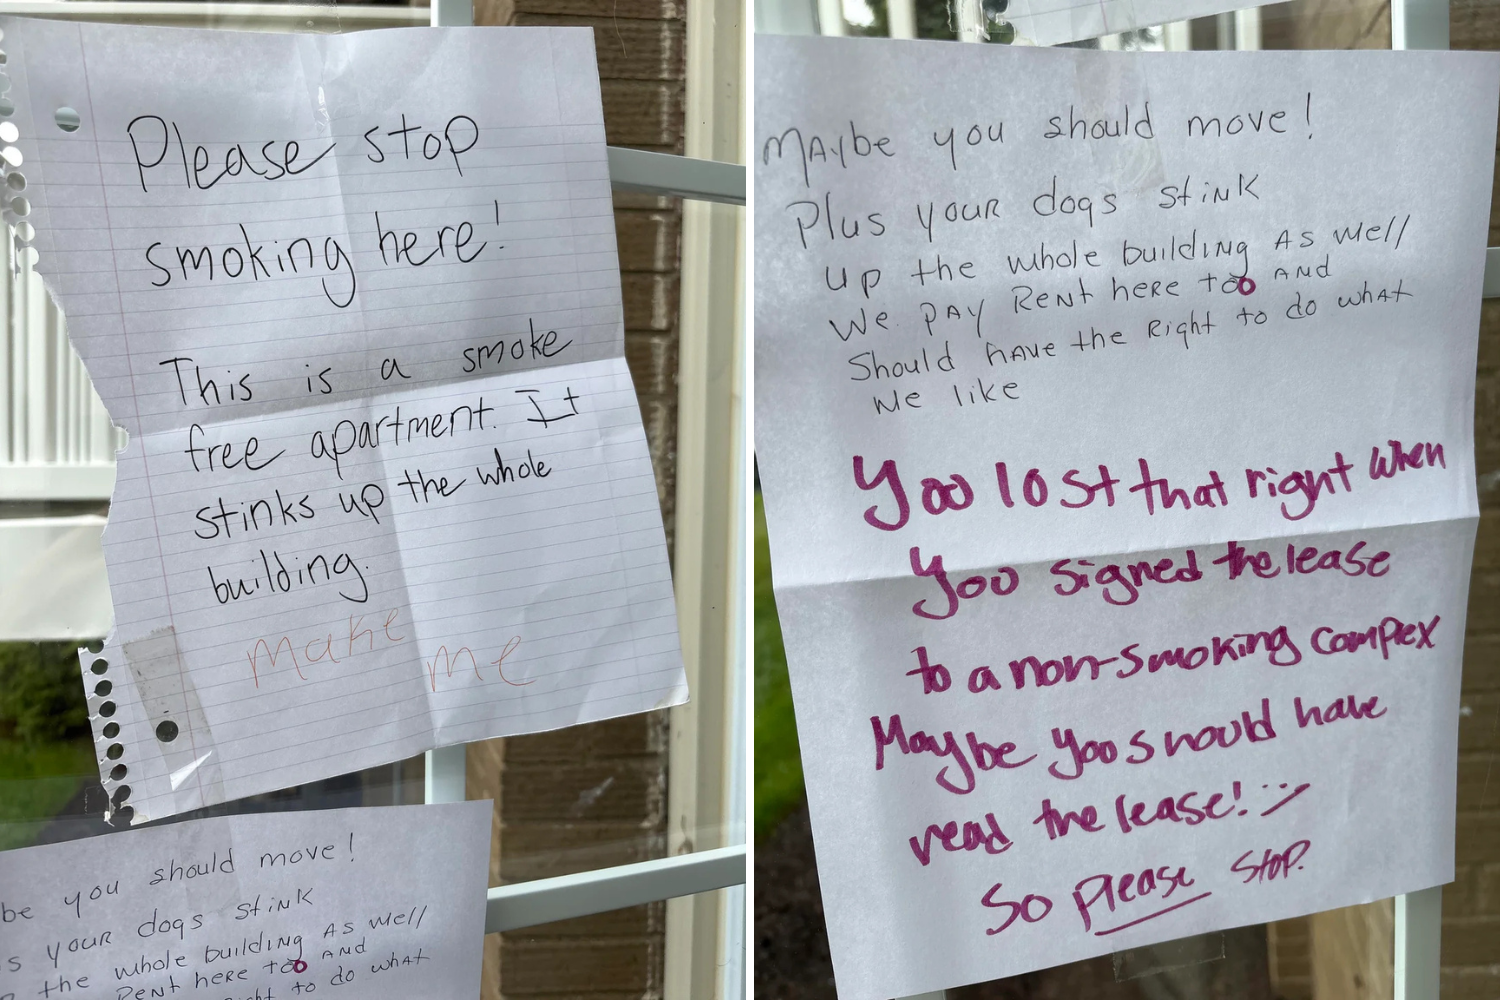 Please stop
smoking here!
This is a smoke
free apartment. It
stinks up the whole
building.
make
me
be you should move!
s your dogs stink
the whole building As well
Rent here too And
ght to do what
Maybe you should move!
Plus your dogs stink
up the whole building As well
We pay Rent here too And
Should have the Right to do what
we like
You lost that right when
you signed the lease
to a non-smoking complex
Maybe you should have
read the lease! :)
So please stop.